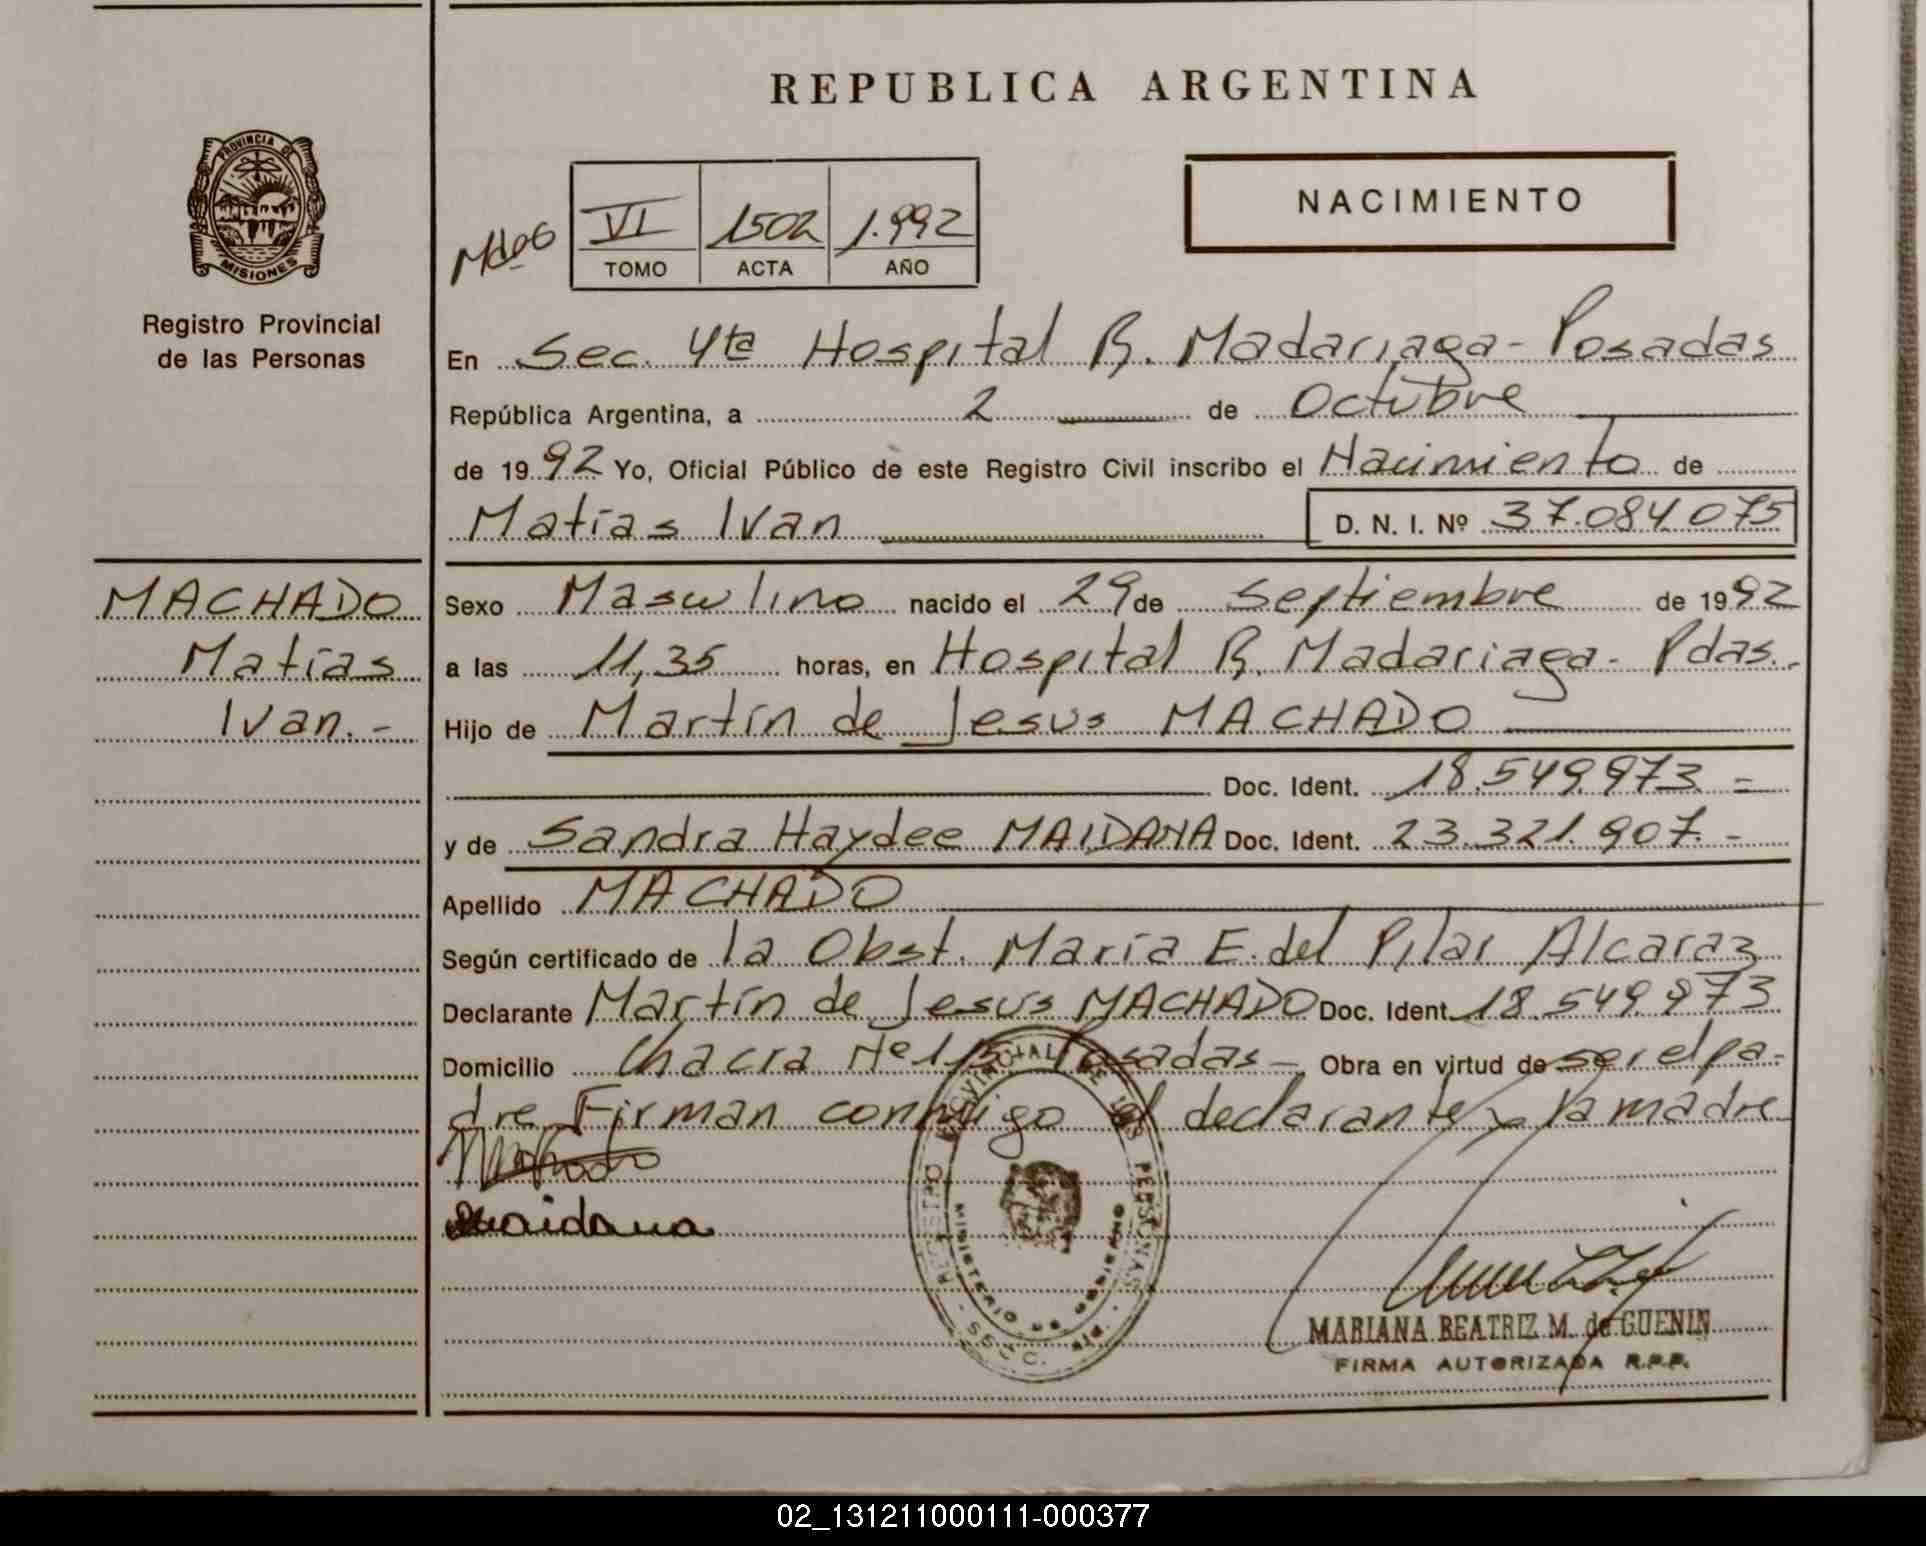 REPUBLICA ARGENTINA
PROVINCIA DE
MISIONES
Registro Provincial
de las Personas
VI 1502 1.992
TOMO ACTA AÑO
NACIMIENTO
En Sec. 4ta Hospital R. Madariaga - Posadas
República Argentina, a 2 de Octubre
de 1992 Yo, Oficial Público de este Registro Civil inscribo el Nacimiento de
Matías Ivan D. N. I. Nº 37.084.075
MACHADO
Matías
Ivan.-
Sexo Masculino nacido el 29 de Septiembre de 1992
a las 11,35 horas, en Hospital R. Madariaga - Pdas.
Hijo de Martín de Jesus MACHADO
Doc. Ident. 18.549.973 =
y de Sandra Haydee MAIDANA Doc. Ident. 23.321.907.-
Apellido MACHADO
Según certificado de la Obst. María E. del Pilar Alcaraz
Declarante Martín de Jesús MACHADO Doc. Ident. 18.549.973
Domicilio Chacra Nº Posadas - Obra en virtud de ser el pa-
dre Firman conmigo el declarante y la madre
Machado
Maidana
REGISTRO PROVINCIAL DE LAS PERSONAS
MINISTERIO DE GOBIERNO
MARIANA BEATRIZ M. de GUENIN
FIRMA AUTORIZADA R.P.P.
02_131211000111-000377